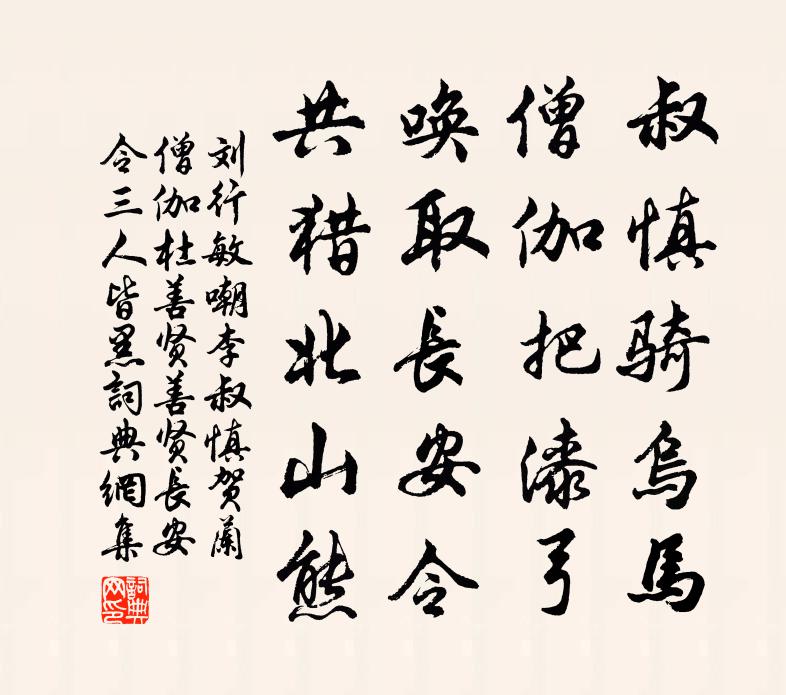 叔慎骑乌馬
僧伽把漆弓
唤取長安令
共猎北山熊
刘行敏嘲李叔慎贺蘭
僧伽杜善贤善贤長安
令三人皆黑詞典網集
詞典
网印